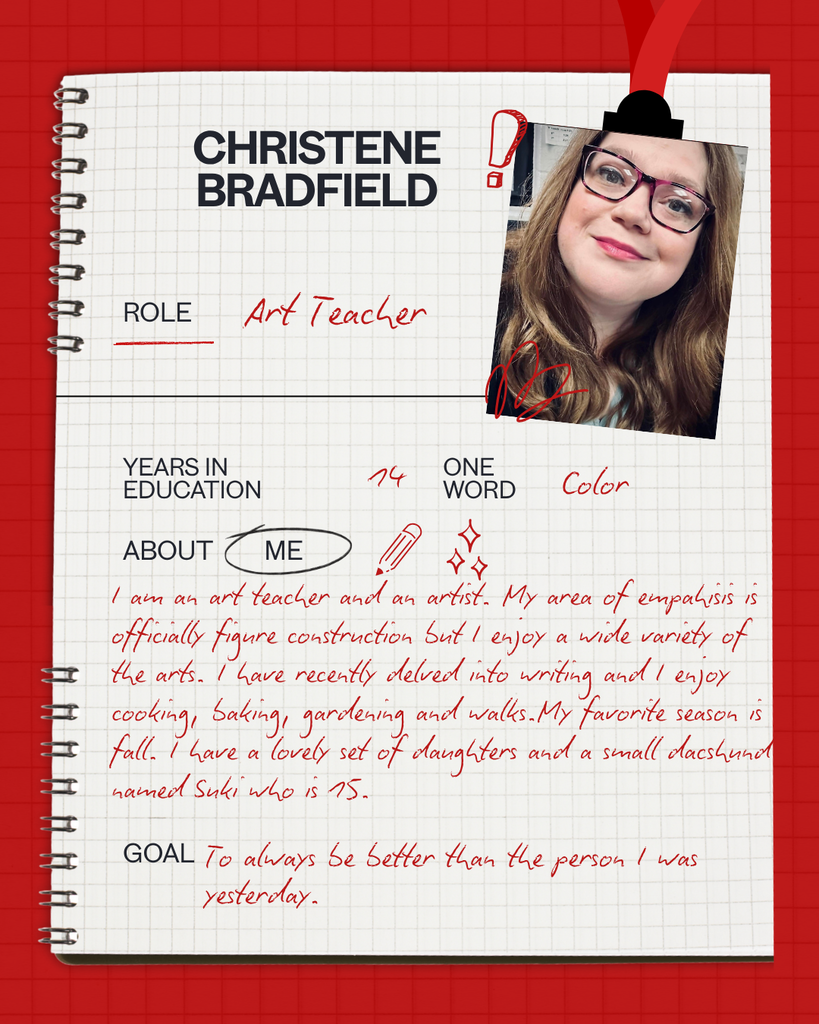 CHRISTENE
BRADFIELD
ROLE Art Teacher
YEARS IN
EDUCATION 14
ONE
WORD Color
ABOUT ME
I am an art teacher and an artist. My area of empahisis is
officially figure construction but I enjoy a wide variety of
the arts. I have recently delved into writing and I enjoy
cooking, baking, gardening and walks.My favorite season is
fall. I have a lovely set of daughters and a small dacshund
named Suki who is 15.
GOAL To always be better than the person I was
yesterday.